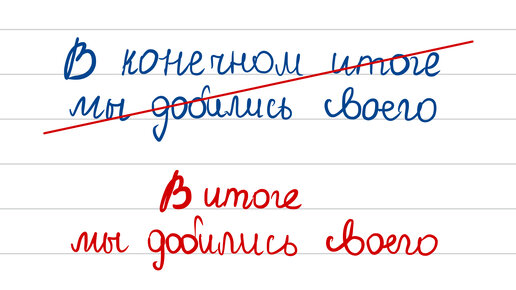 В конечном итоге
мы добились своего
В итоге
мы добились своего